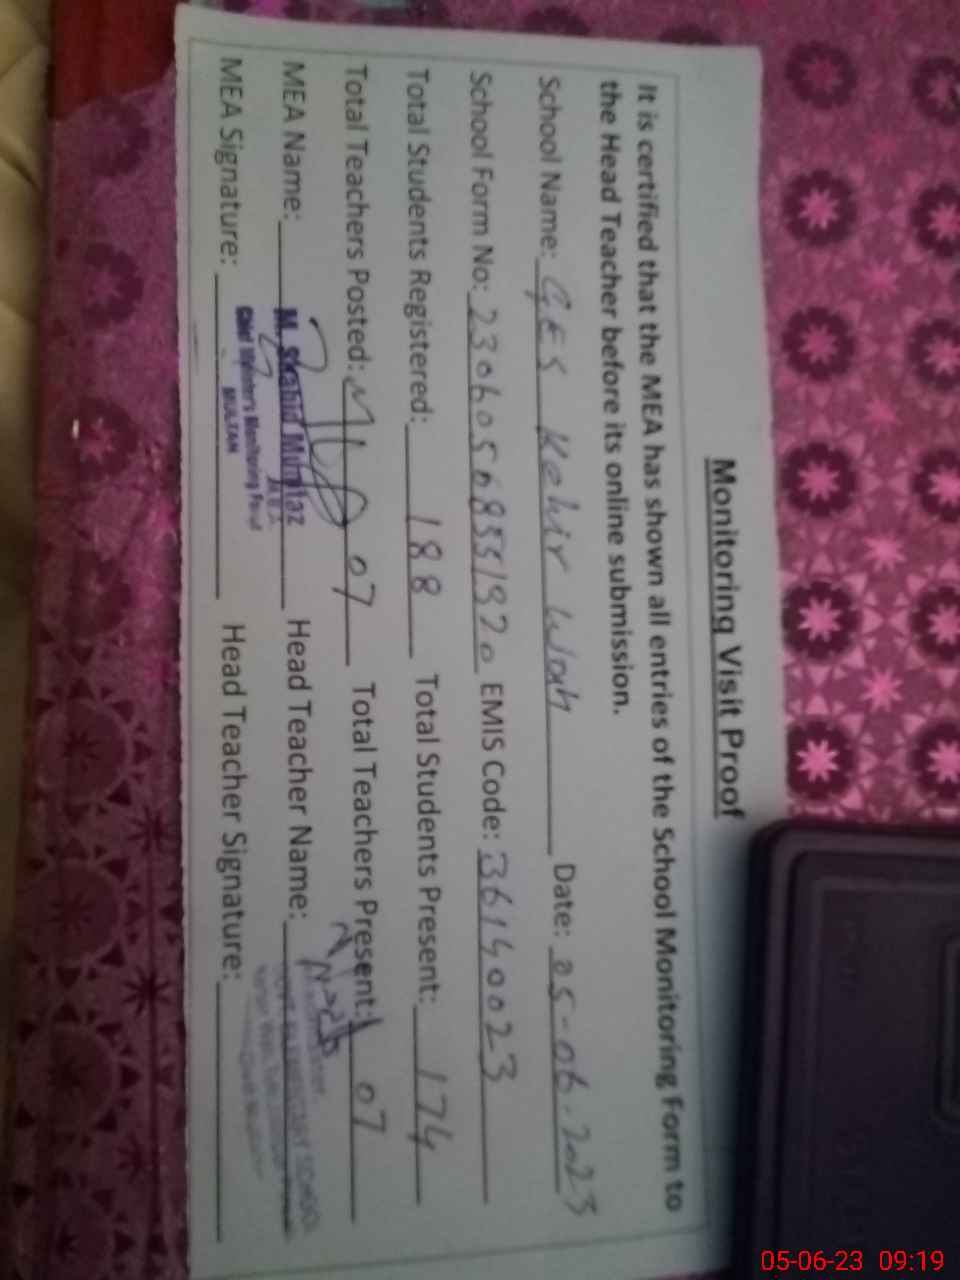 Monitoring Visit Proof
It is certified that the MEA has shown all entries of the School Monitoring Form to
the Head Teacher before its online submission.
School Name: GES Kehir Wah Date: 05-06-2023
School Form No: EMIS Code: 36140023
Total Students Registered: 188 Total Students Present: 174
Total Teachers Posted: 07 Total Teachers Present: 07
MEA Name: M. Shahid Mumtaz Head Teacher Name:
M.E.A
MEA Signature: Chief Minister's Monitoring Force Head Teacher Signature:
MULTAN
ELEMENTARY SCHOOL
05-06-23 09:19